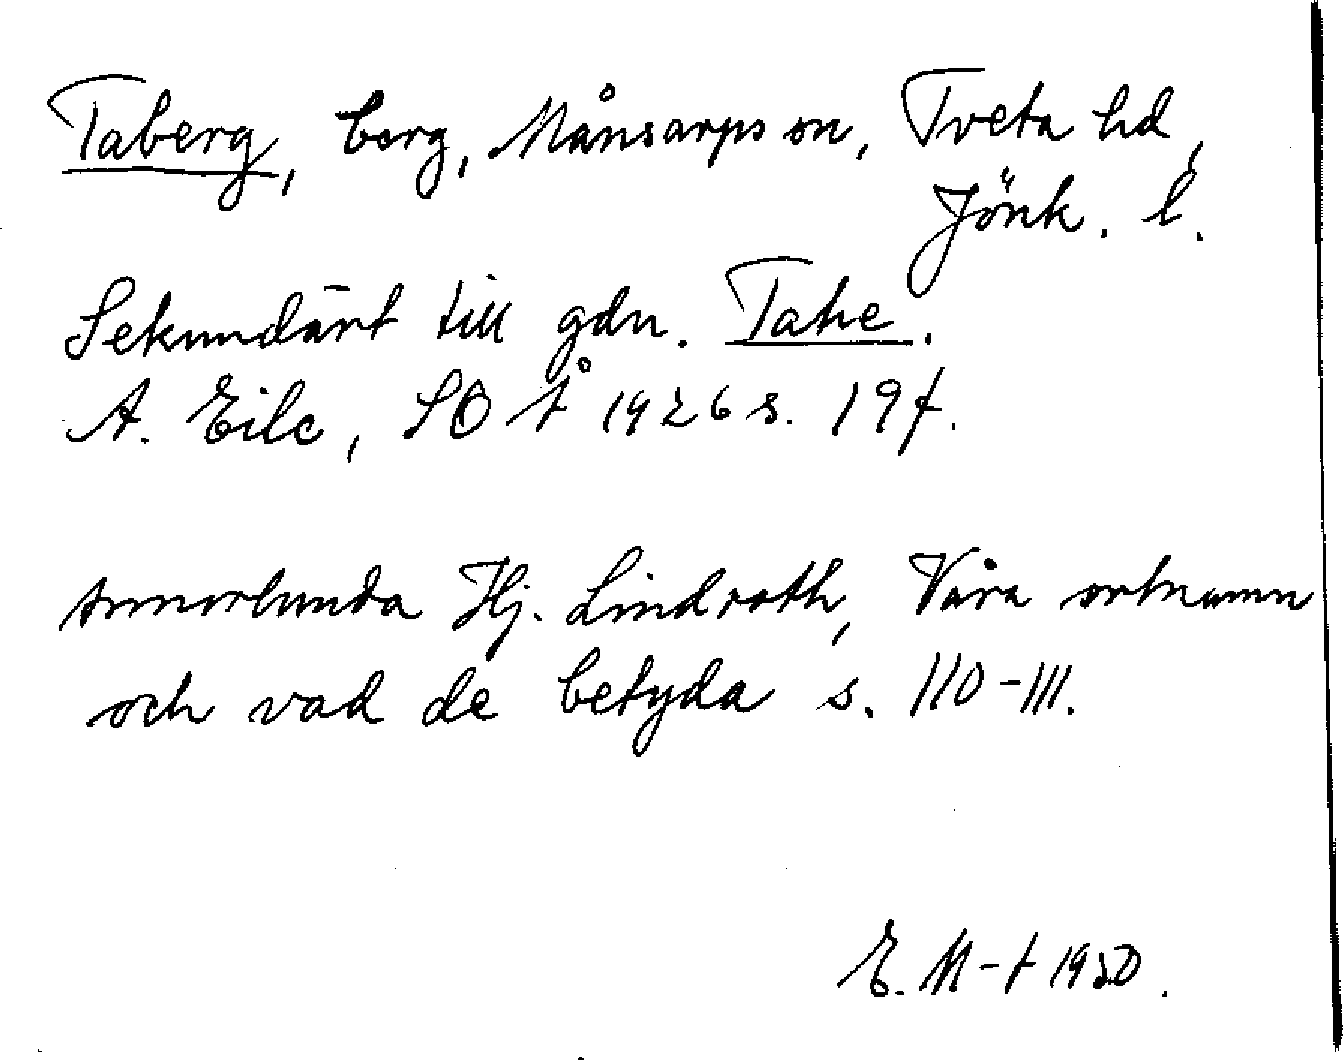 Taberg, berg, Månsarps sn, Tveta hd,
Jönk. l.
Sekundärt till gdn. Tahe.
A. Eile, SOÅ 1926 s. 19f.
Annorlunda Hj. Lindroth, Våra ortnamn
och vad de betyda s. 110-111.
E. M-t 1950.